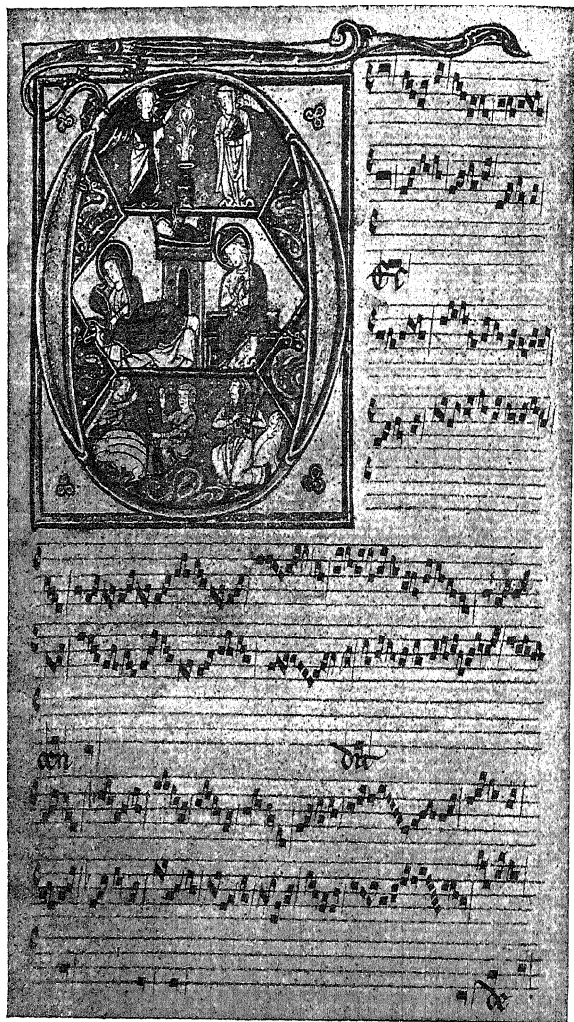 D
ES
cen dit
de